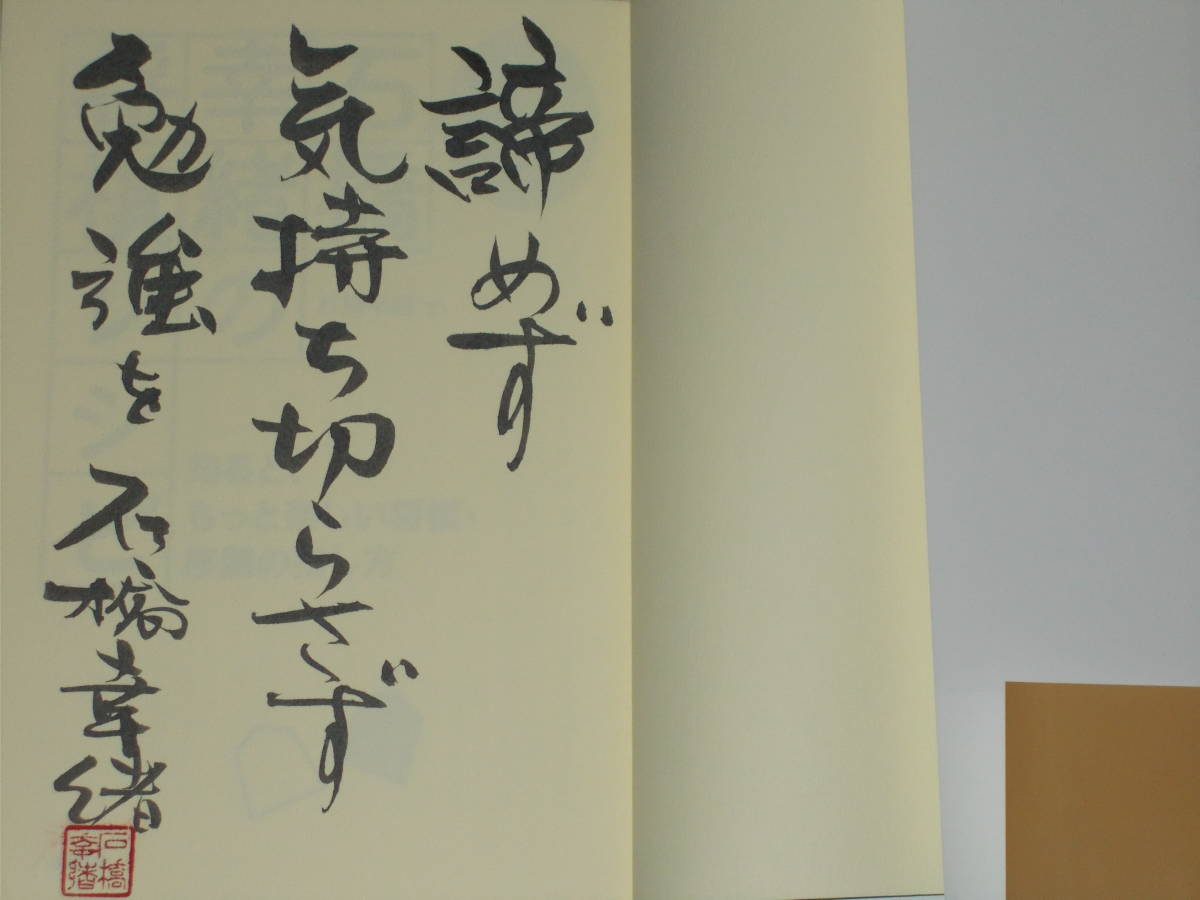 諦めず
気持ち切らさず
勉強を 石橋幸緒
石橋
幸緒